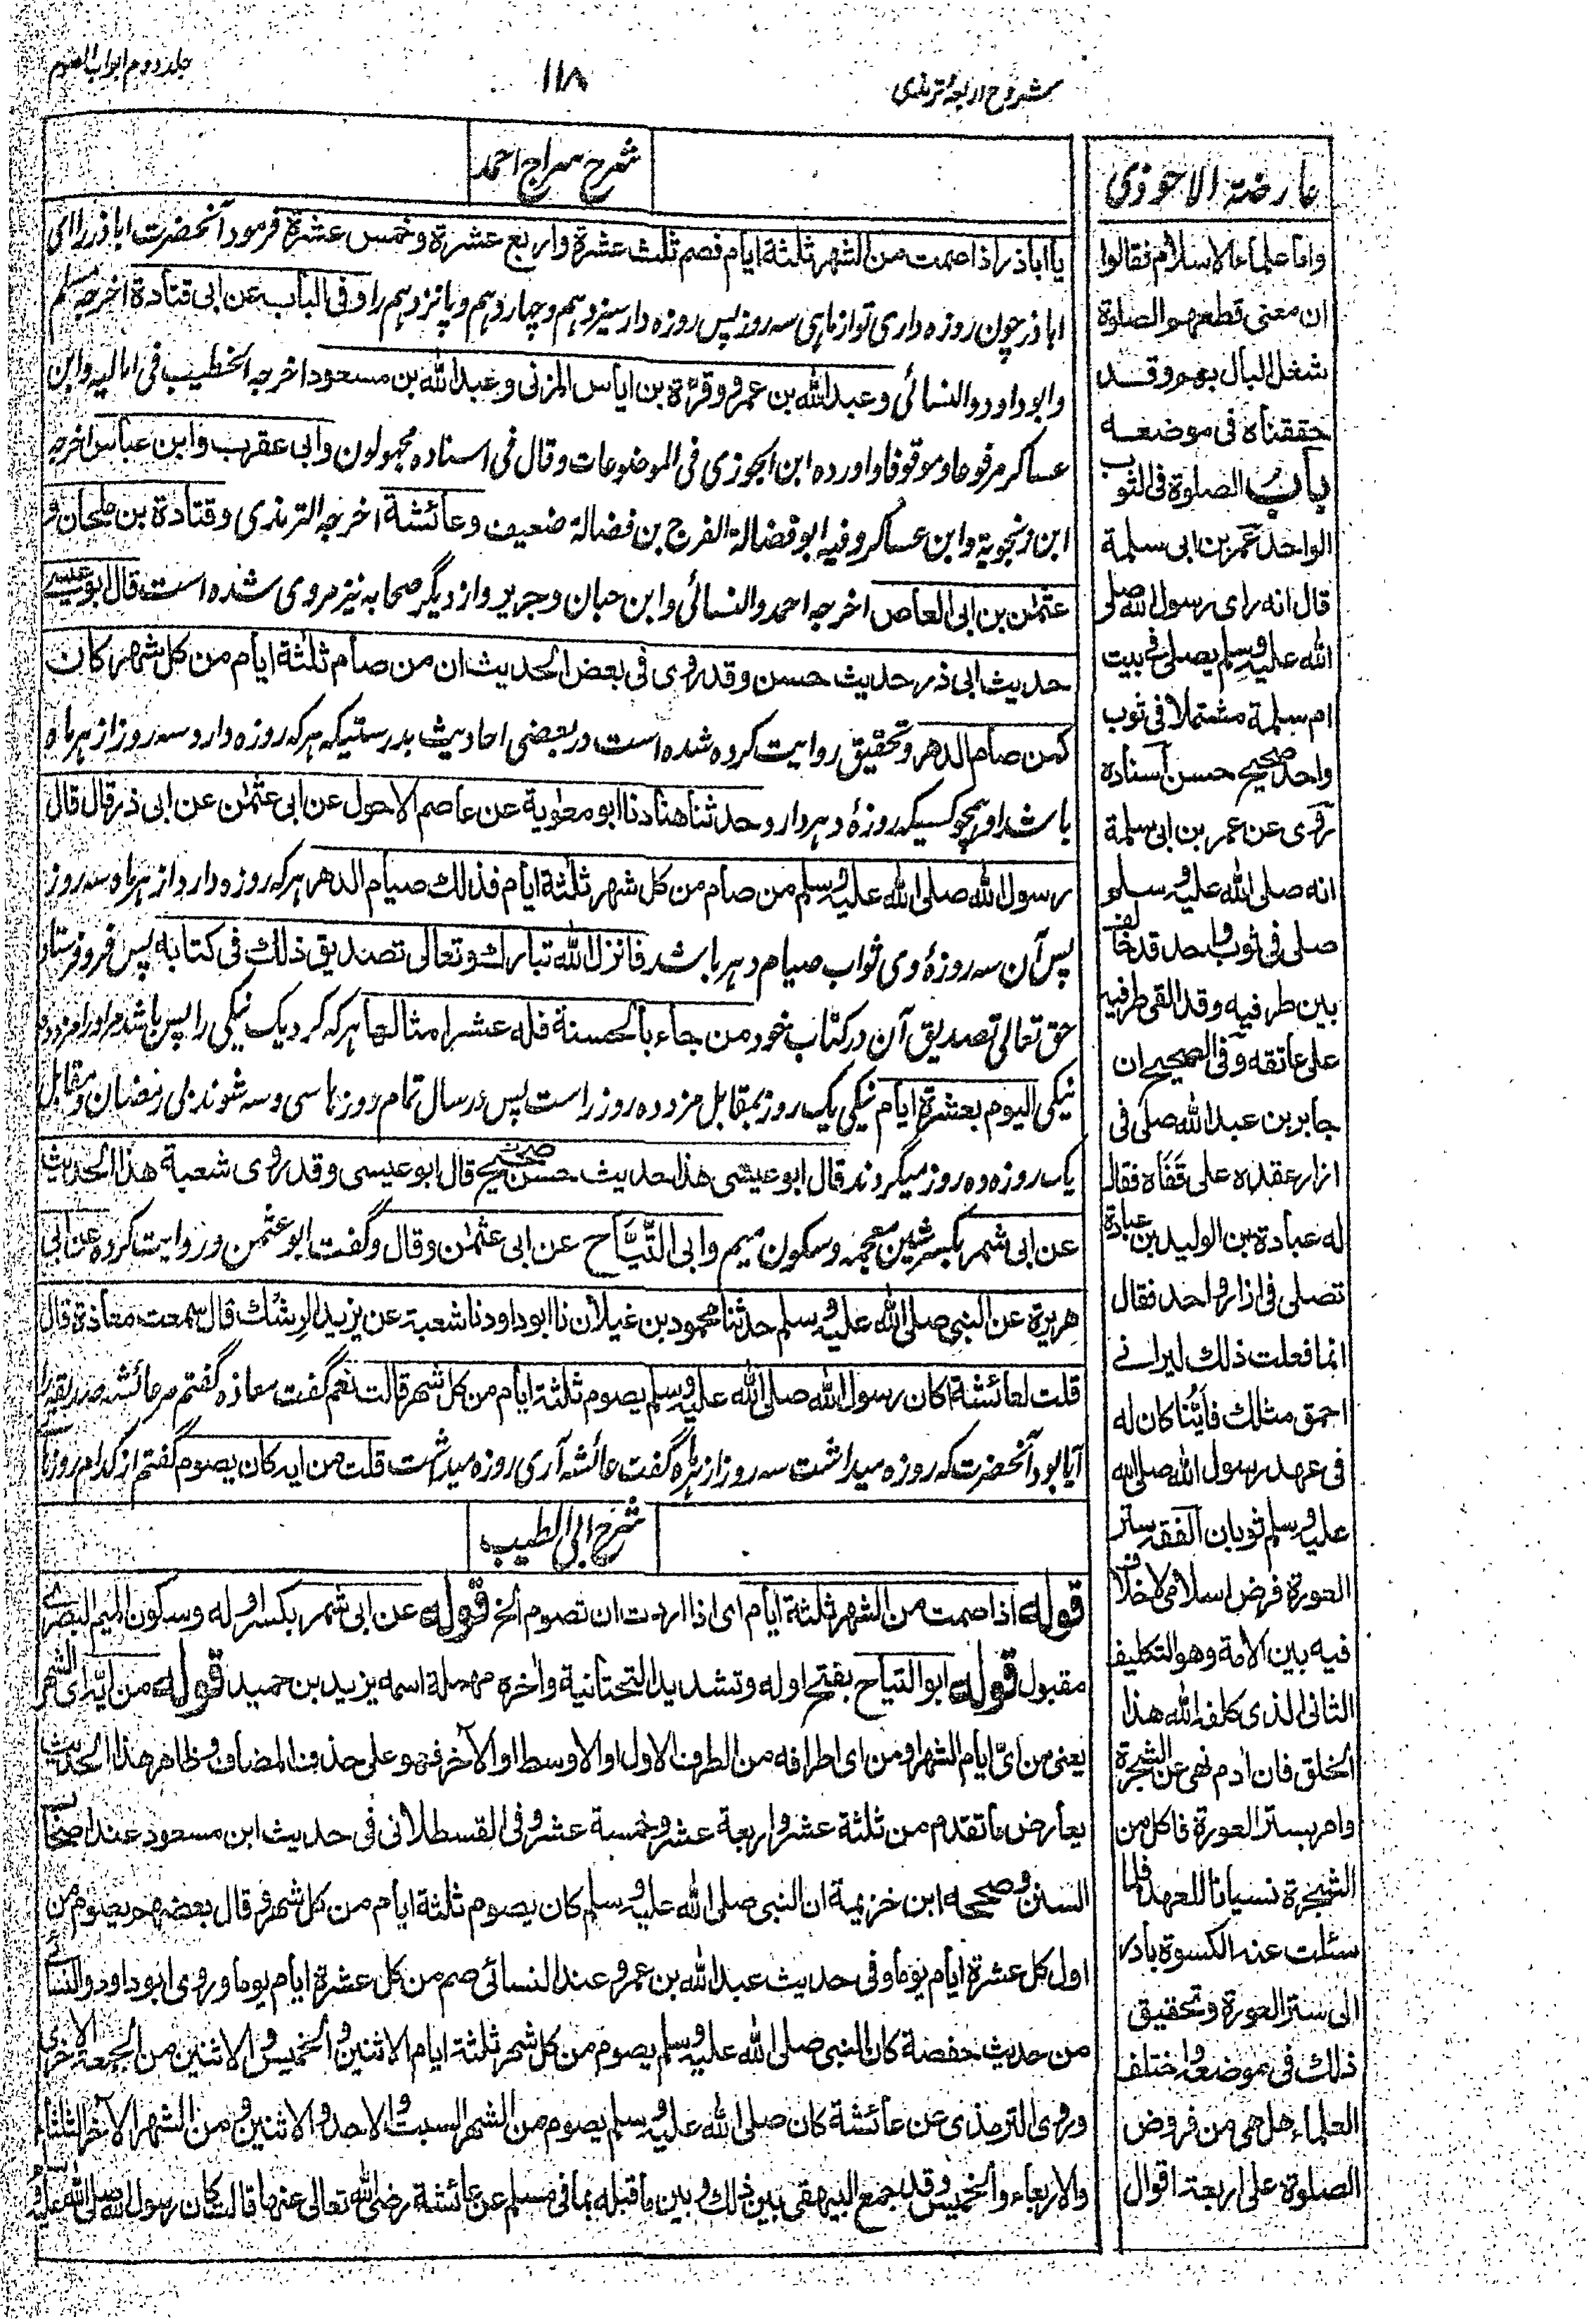 مشروح اربعۂ ترمذی
۱۱۸
جلد دوم ابواب الصوم
عارضة الاحوذی
واما علماء الاسلام فقالوا
ان معنی قطعهو الصلوة
شغل البال بهم وقد
حققناه فی موضعه
باب الصلوة فی الثوب
الواحد عمر بن ابی سلمة
قال انه رای رسول الله صلی
الله علیه وسلم یصلی فی بیت
ام سلمة مشتملا فی ثوب
واحد صحیح حسن اسناده
روی عن عمر بن ابی سلمة
انه صلی الله علیه وسلم
صلی فی ثوب واحد قد خالف
بین طرفیه وقد القی طرفیه
علی عاتقه وفی الصحیح ان
جابر بن عبد الله صلی فی
ازار عقده علی قفاه فقال
له عبادة بن الولید بن عبادة
تصلی فی ازار واحد فقال
انما فعلت ذلك لیرانی
احمق مثلك فاینا کان له
فی عهد رسول الله صلی الله
علیه وسلم ثوبان الفقه ستر
العورة فرض اسلامی لا خلاف
فیه بین الامة وهو التکلیف
الثانی الذی کلفه الله هذا
الخلق فان ادم نهی عن الشجرة
وامر بستر العورة فاکل من
الشجرة نسیانا للعهد فلما
سئلت عنه الکسوة بادر
الی ستر العورة وتحقیق
ذلك فی موضعه واختلف
العلماء هل هی من فروض
الصلوة علی اربعة اقوال
شرح سراج احمد
یا اباذر اذا صمت من الشهر ثلثة ایام فصم ثلث عشرة واربع عشرة وخمس عشرة فرمود آنحضرت اباذر را ای
اباذر چون روزه داری تو از ماهی سه روز پس روزه دار سیزدهم وچهاردهم وپانزدهم را وفی الباب عن ابی قتادة اخرجه مسلم
وابوداود والنسائی وعبدالله بن عمرو وقرة بن ایاس المزنی وعبدالله بن مسعود اخرجه الخطیب فی امالیه وابن
عساکر مرفوعا وموقوفا واورده ابن الجوزی فی الموضوعات وقال فی اسناده مجهولون وابی عقرب وابن عباس اخرجه
ابن زنجویة وابن عساکر وفیه ابو فضالة الفرج بن فضالة ضعیف وعائشة اخرجه الترمذی وقتادة بن ملحان و
عثمن بن ابی العاص اخرجه احمد والنسائی وابن حبان وجریر واز دیگر صحابه نیز مروی شده است قال ابو عیسی
حدیث ابی ذر حدیث حسن وقد روی فی بعض الحدیث ان من صام ثلثة ایام من کل شهر کان
کمن صام الدهر وتحقیق روایت کرده شده است در بعضی احادیث بدرستیکه هر که روزه دارد سه روز از هر ماه
باشد او همچو کسیکه روزهٔ دهر دارد حدثنا هناد نا ابو معویة عن عاصم الاحول عن ابی عثمن عن ابی ذر قال قال
رسول الله صلی الله علیه وسلم من صام من کل شهر ثلثة ایام فذلك صیام الدهر هر که روزه دارد از هر ماه سه روز
پس آن سه روزهٔ وی ثواب صیام دهر باشد فانزل الله تبارك وتعالی تصدیق ذلك فی کتابه پس فرو فرستاد
حق تعالی تصدیق آن در کتاب خود من جاء بالحسنة فله عشر امثالها هر که کرد یک نیکی را پس باشد مر او را مزد ده
نیکی الیوم بعشرة ایام نیکی یک روز بمقابل مزد ده روز است پس در سال تمام روزها سی وسه شوند بی رمضان ومقابل
یک روزه ده روز میگردند قال ابو عیسی هذا حدیث حسن صحیح قال ابو عیسی وقد روی شعبة هذا الحدیث
عن ابی شمر بکسر شین معجمه وسکون میم وابی التیاح عن ابی عثمن وقال وگفت ابو عثمن در روایت کرده عن ابی
هریرة عن النبی صلی الله علیه وسلم حدثنا محمود بن غیلان نا ابو داود نا شعبة عن یزید الرشك قال سمعت معاذة قال
قلت لعائشة اکان رسول الله صلی الله علیه وسلم یصوم ثلثة ایام من کل شهر قالت نعم گفت معاذه گفتم مر عائشه صدیقه را
آیا بود آنحضرت که روزه میداشت سه روز از هر ماه گفت عائشه آری روزه میداشت قلت من ایه کان یصوم گفتم از کدام روزها
شرح ابی الطیب
قوله اذا صمت من الشهر ثلثة ایام ای اذا اردت ان تصوم الخ قوله عن ابی شمر بکسر اوله وسکون المیم البصری
مقبول قوله ابو التیاح بفتح اوله وتشدید التحتانیة واخره مهملة اسمه یزید بن حمید قوله من ایه ای الشهر
یعنی من ای ایام الشهر او من ای اطرافه من الطرف الاول او الاوسط او الآخر فهو علی حذف المضاف وظاهر هذا الحدیث
یعارض ما تقدم من ثلثة عشر واربعة عشر وخمسة عشر وفی القسطلانی فی حدیث ابن مسعود عند اصحاب
السنن وصححه ابن خزیمة ان النبی صلی الله علیه وسلم کان یصوم ثلثة ایام من کل شهر وقال بعضهم یصوم من
اول کل عشرة ایام یوما وفی حدیث عبد الله بن عمرو عند النسائی صم من کل عشرة ایام یوما وروی ابو داود والنسائی
من حدیث حفصة کان النبی صلی الله علیه وسلم یصوم من کل شهر ثلثة ایام الاثنین والخمیس والاثنین من الجمعة الاخری
وروی الترمذی عن عائشة کان صلی الله علیه وسلم یصوم من الشهر السبت والاحد والاثنین ومن الشهر الآخر الثلثاء
والاربعاء والخمیس وقد جمع البیهقی بین ذلك وبین ما قبله بما فی مسلم عن عائشة رضی الله تعالی عنها قالت کان رسول الله صلی الله علیه و